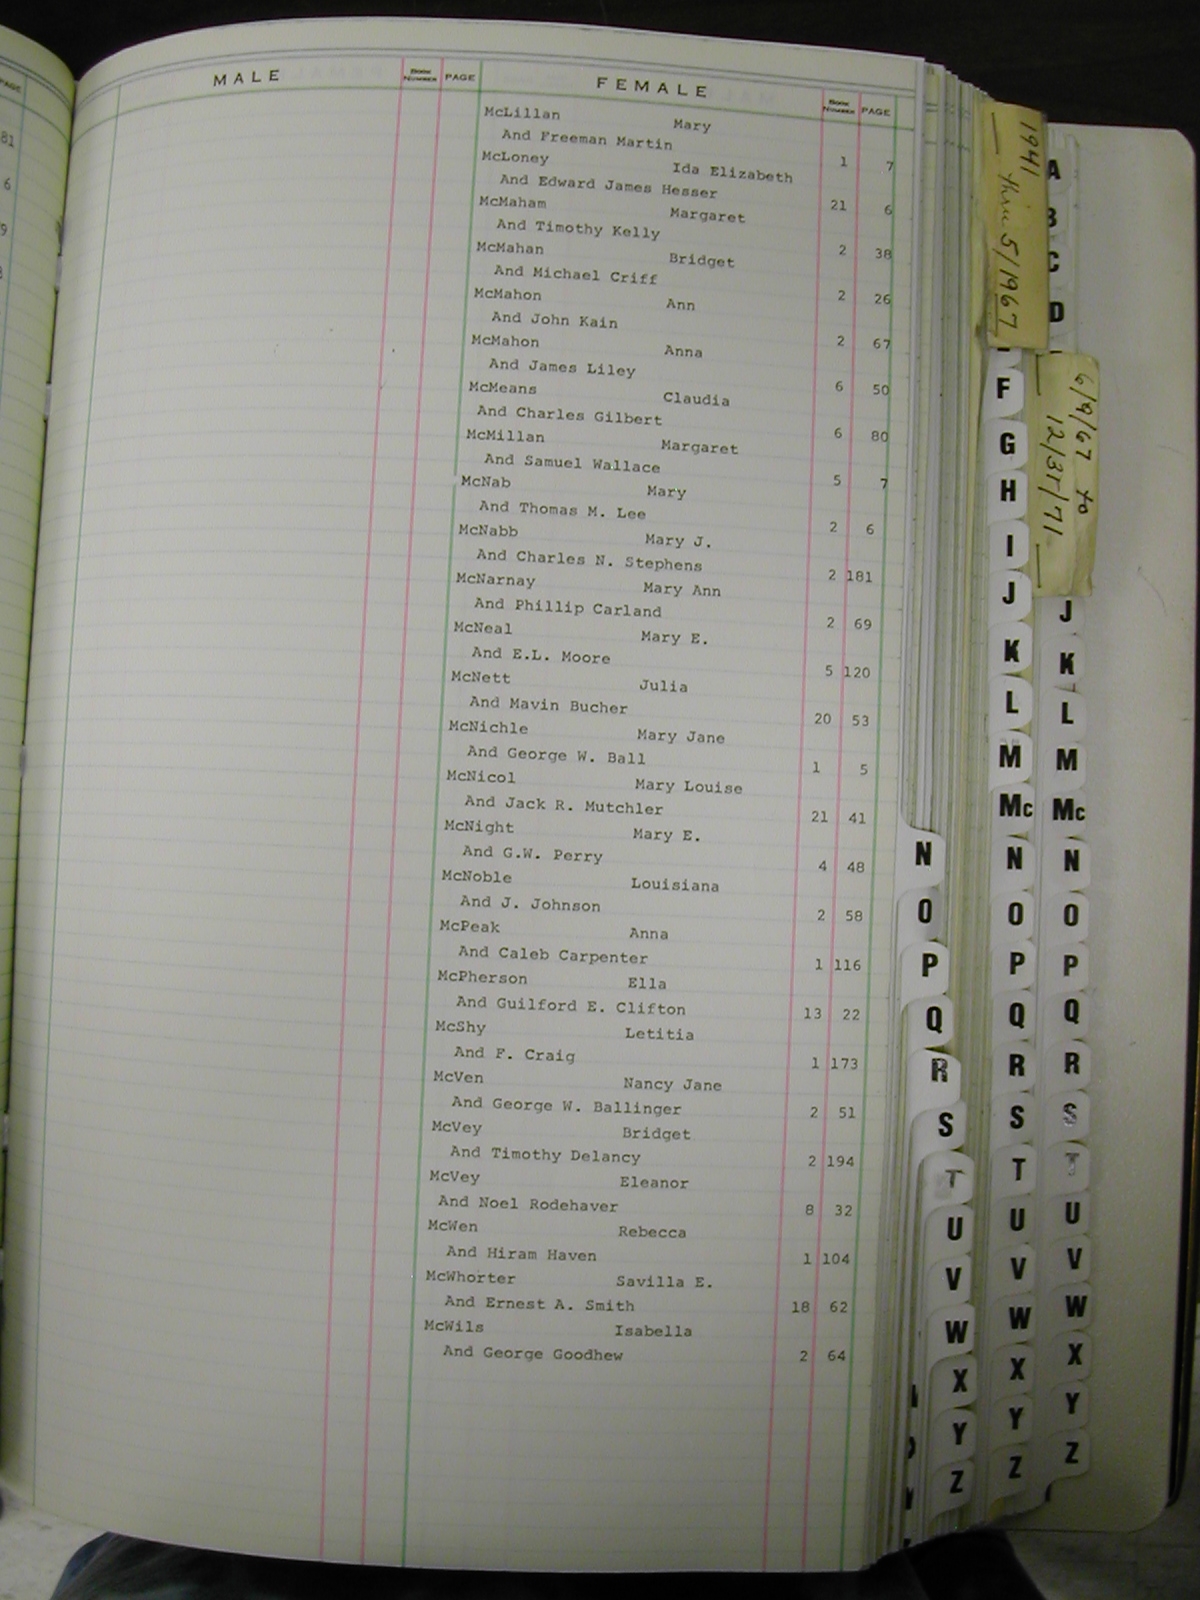 PAGE
81
6
9
MALE BOOK NUMBER PAGE FEMALE BOOK NUMBER PAGE
McLillan Mary
And Freeman Martin 1 7
McLoney Ida Elizabeth
And Edward James Hesser 21 6
McMaham Margaret
And Timothy Kelly 2 38
McMahan Bridget
And Michael Criff 2 26
McMahon Ann
And John Kain 2 67
McMahon Anna
And James Liley 6 50
McMeans Claudia
And Charles Gilbert 6 80
McMillan Margaret
And Samuel Wallace 5 7
McNab Mary
And Thomas M. Lee 2 6
McNabb Mary J.
And Charles N. Stephens 2 181
McNarnay Mary Ann
And Phillip Carland 2 69
McNeal Mary E.
And E.L. Moore 5 120
McNett Julia
And Mavin Bucher 20 53
McNichle Mary Jane
And George W. Ball 1 5
McNicol Mary Louise
And Jack R. Mutchler 21 41
McNight Mary E.
And G.W. Perry 4 48
McNoble Louisiana
And J. Johnson 2 58
McPeak Anna
And Caleb Carpenter 1 116
McPherson Ella
And Guilford E. Clifton 13 22
McShy Letitia
And F. Craig 1 173
McVen Nancy Jane
And George W. Ballinger 2 51
McVey Bridget
And Timothy Delancy 2 194
McVey Eleanor
And Noel Rodehaver 8 32
McWen Rebecca
And Hiram Haven 1 104
McWhorter Savilla E.
And Ernest A. Smith 18 62
McWils Isabella
And George Goodhew 2 64
N
O
P
Q
R
S
T
U
V
W
X
Y
Z
1941 thru 5/1967
F
G
H
I
J
K
L
M
Mc
N
O
P
Q
R
S
T
U
V
W
X
Y
Z
A
B
C
D
6/9/67 to
12/31/71
J
K
L
M
Mc
N
O
P
Q
R
S
T
U
V
W
X
Y
Z